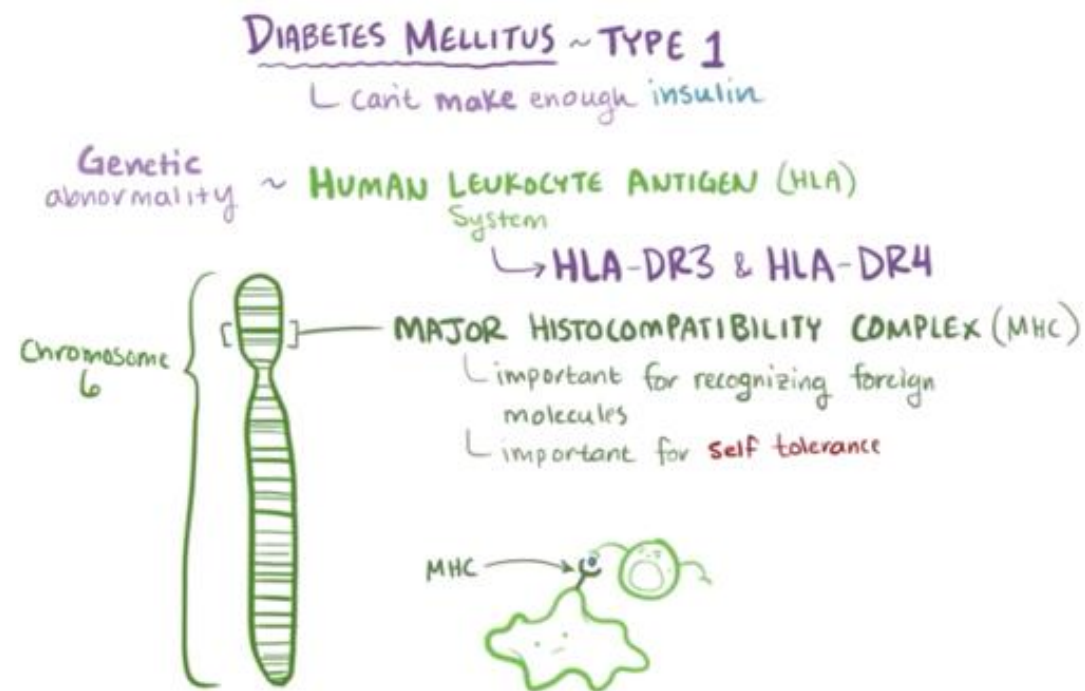 DIABETES MELLITUS ~ TYPE 1
can't make enough insulin
Genetic
abnormality ~ HUMAN LEUKOCYTE ANTIGEN (HLA)
System
HLA-DR3 & HLA-DR4
MAJOR HISTOCOMPATIBILITY COMPLEX (MHC)
Chromosome
6
important for recognizing foreign
molecules
important for self tolerance
MHC